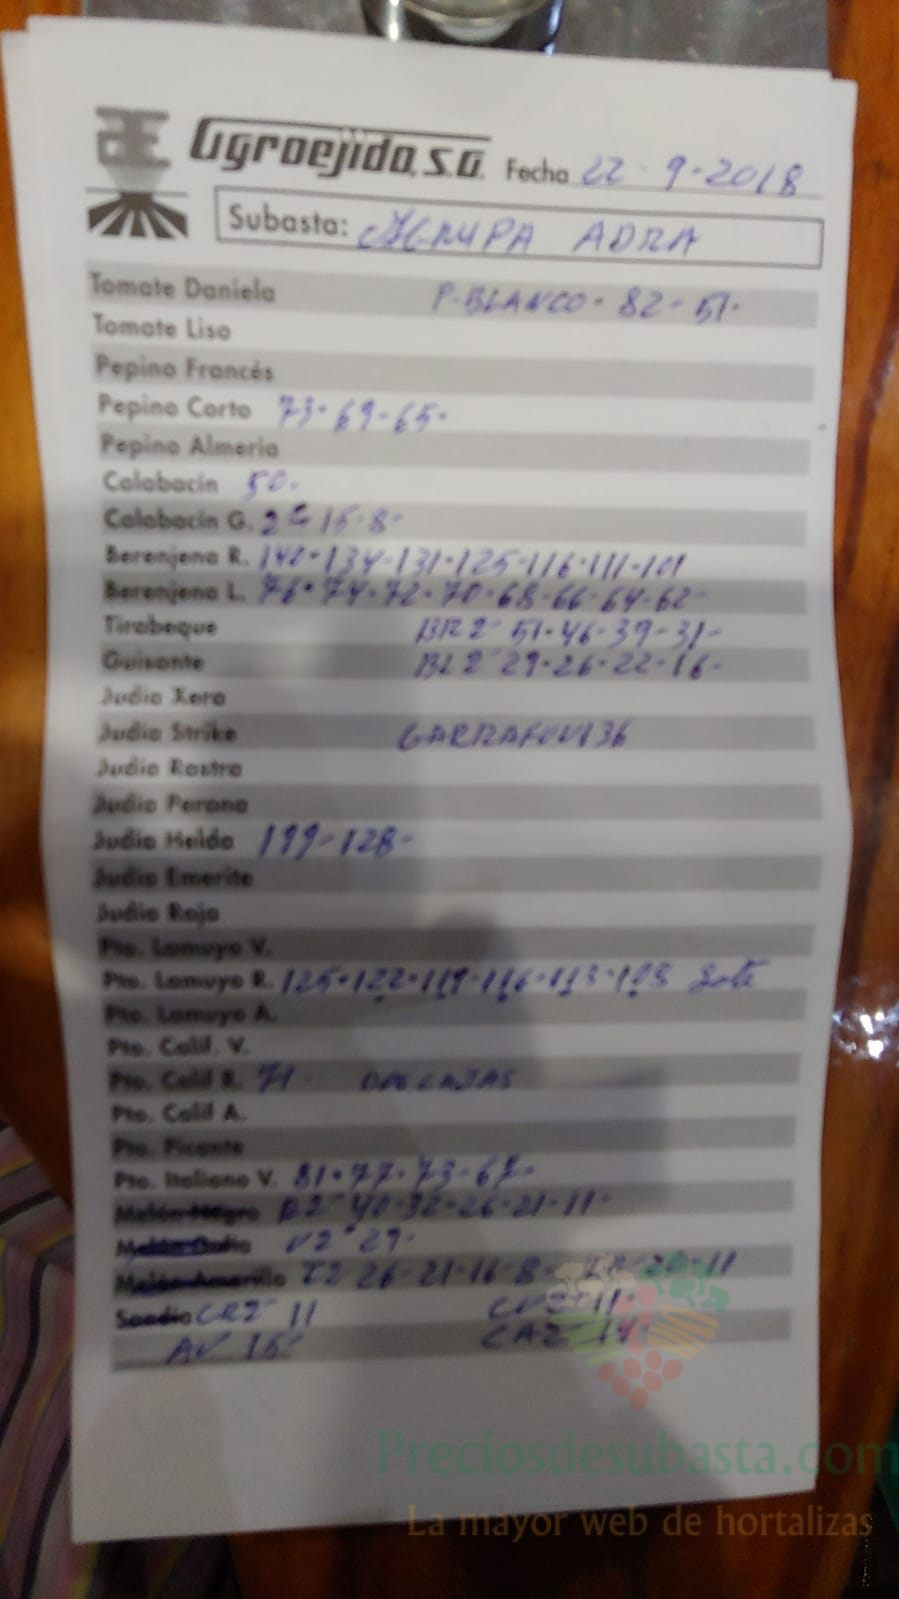 Agroejido, S.A. Fecha 22-9-2018
Subasta: AGRUPA ADRA
Tomate Daniela P-BLANCO-82-51-
Tomate Liso
Pepino Francés
Pepino Corto 73-69-65-
Pepino Almeria
Calabacin 50-
Calabacin G. 2ª 15-8-
Berenjena R. 140-134-131-125-116-111-101
Berenjena L. 76-74-72-70-68-66-64-62-
Tirabeque BR 2ª 51-46-39-31-
Guisante BL 2ª 29-26-22-16-
Judia Xera
Judia Strike GARRAFON 136
Judia Rastra
Judia Perona
Judia Helda 199-128-
Judia Emerite
Judia Roja
Pto. Lamuyo V.
Pto. Lamuyo R. 125-122-119-116-113-108
Pto. Lamuyo A.
Pto. Calif. V.
Pto. Calif R. 71- DOS CAJAS
Pto. Calif A.
Pto. Picante
Pto. Italiano V. 81-77-73-67-
Melón Negro R2ª 40-32-26-21-11-
V2ª 29-
Melón Amarillo I2 26-21-16-8- 20-11
Sandia CR2ª 11 CV 11-
AV 15- CA2ª 14-
Preciosdesubasta.com
La mayor web de hortalizas